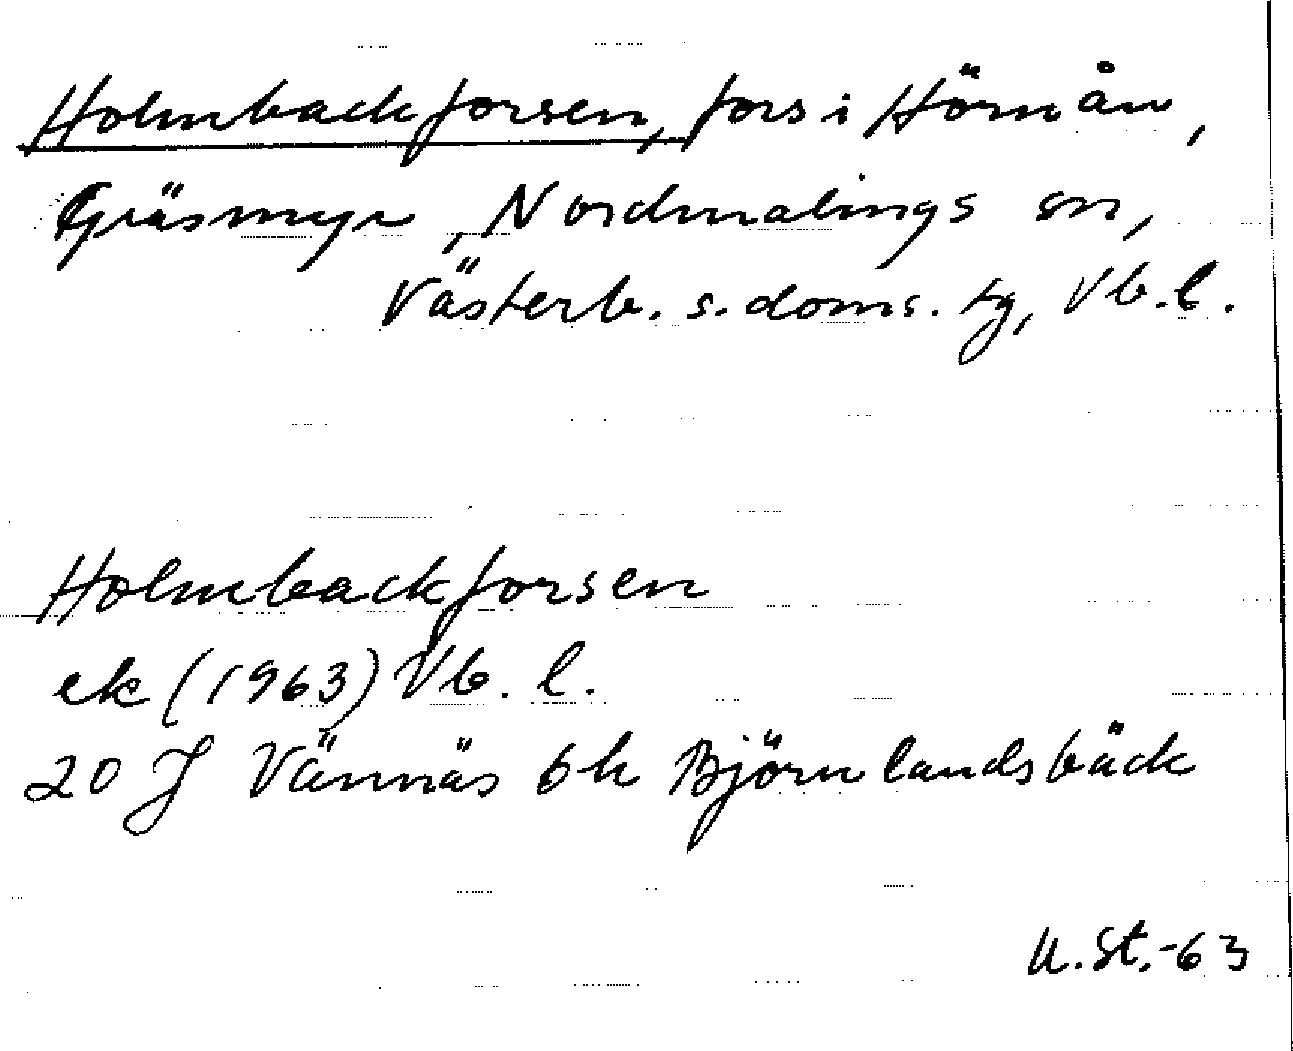 Holmbackforsen, fors i Hörnån,
Gräsmyr, Nordmalings sn,
Västerb. s. doms. tg, Vb. l.
Holmbackforsen
ek (1963) Vb. l.
20 J Vännäs 6h Björnlandsbäck
U. St. -63